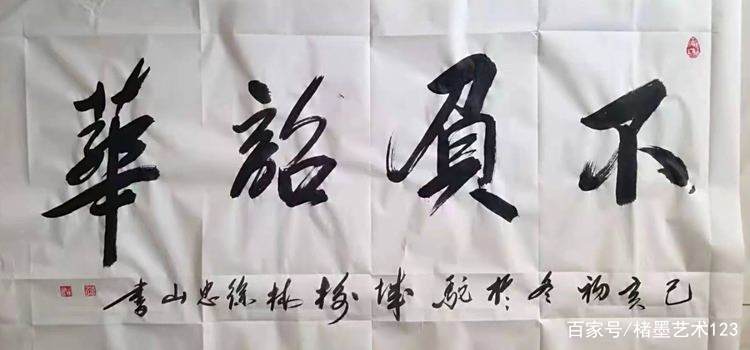 不負韶華
己亥初冬於駝城榆林徐忠山書
百家号/楮墨艺术123